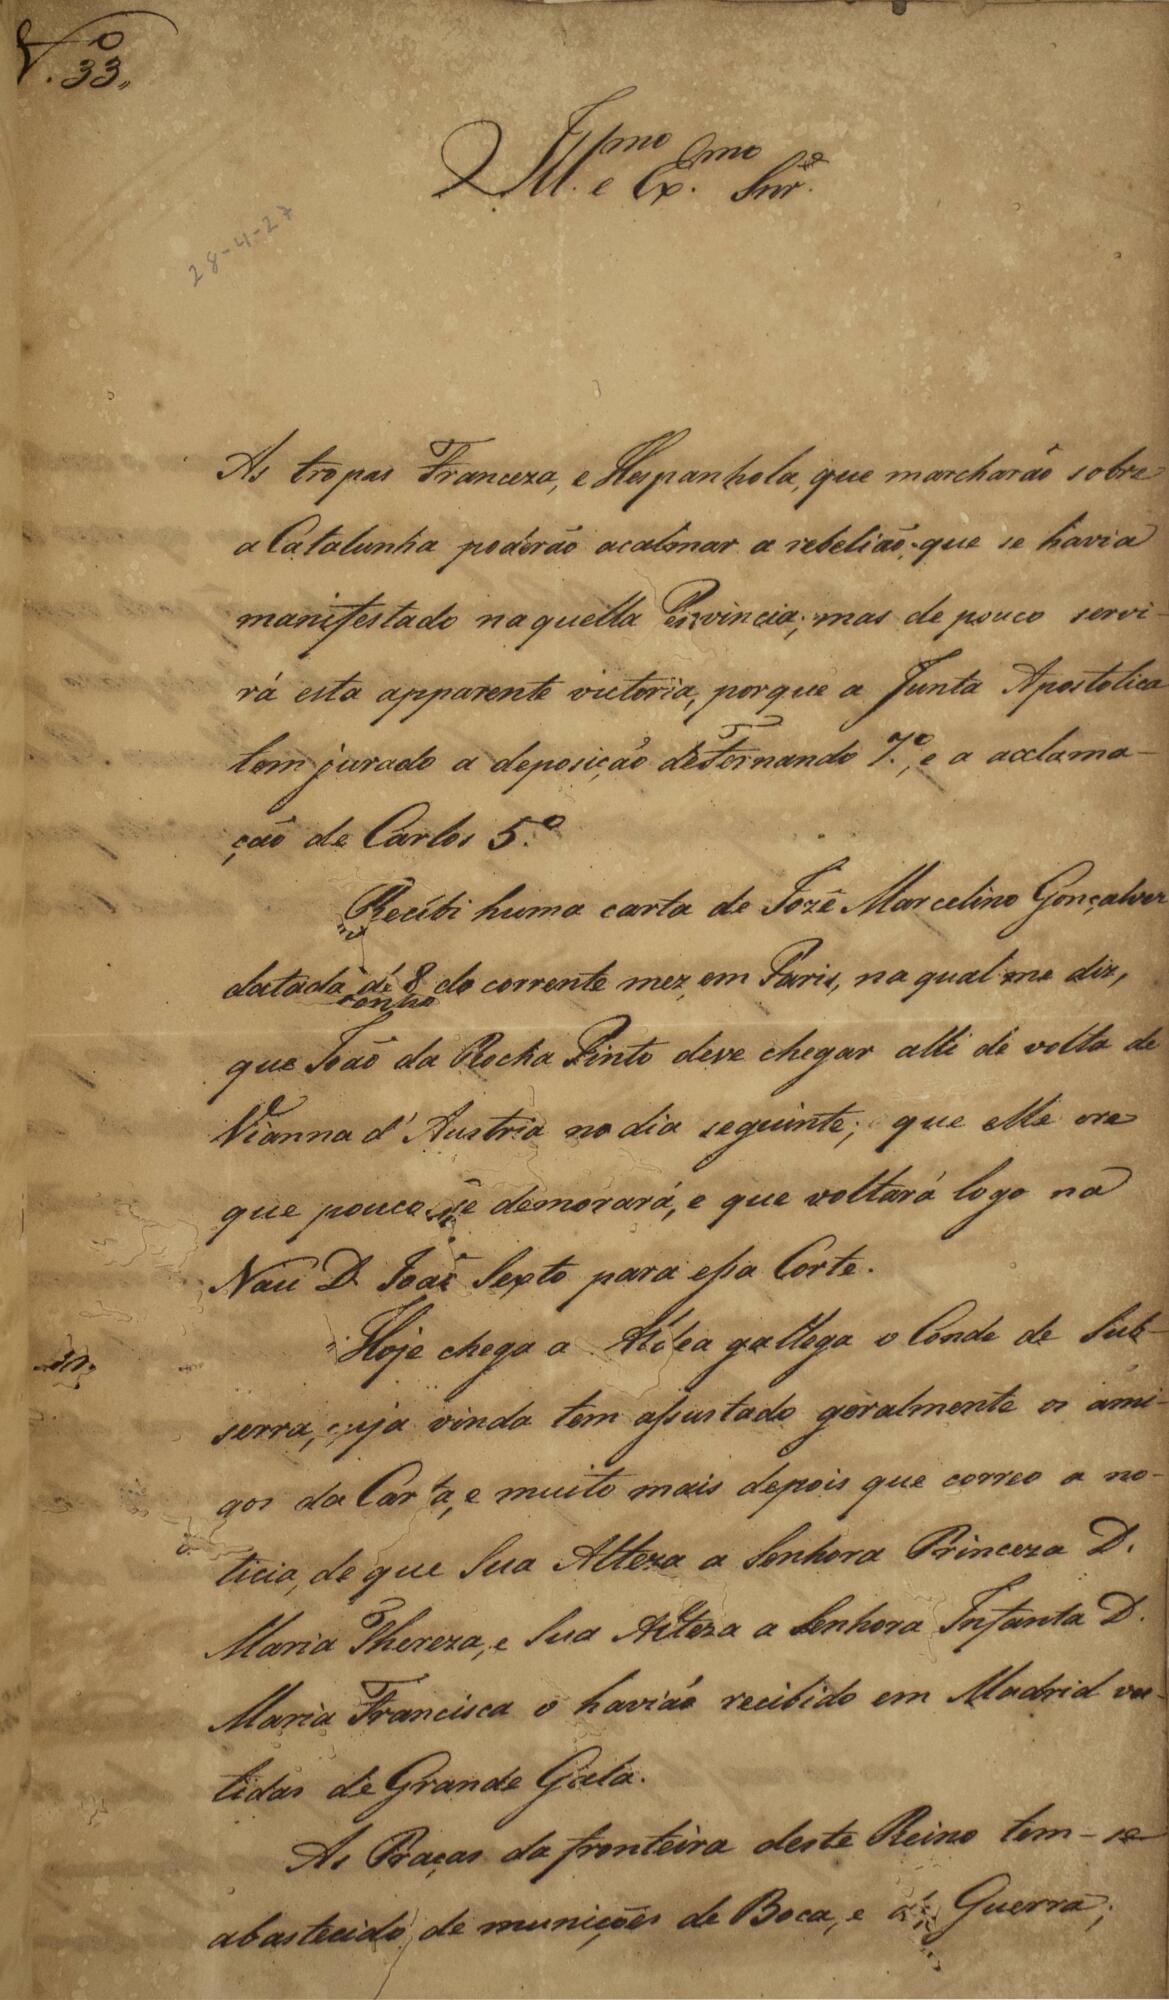 N.o 33,,
Ill.mo e Ex.mo Snr.e
28-4-27
As tropas Franceza, e Hespanhola, que marcharão sobre
a Catalunha poderão acalmar a rebelião, que se havia
manifestado naquella Provincia; mas de pouco servi-
rá esta apparente victoria, porque a Junta Apostolica
tem jurado a deposição de Fernando 7.o, e a acclama-
ção de Carlos 5.o
Recibi huma carta de Jozé Marcelino Gonçalves
datada de 8 do corrente mez, em Paris, na qual me diz,
que João da Rocha Pinto deve chegar alli de volta de
Vianna d'Austria no dia seguinte; que elle cre
que pouco se demorará, e que voltará logo na
Náu D. João Sexto para essa Corte.
Hoje chega a Aldea gallega o Conde de Sub-
serra, cuja vinda tem assustado geralmente os ami-
gos da Carta, e muito mais depois que correo a no-
ticia, de que Sua Alteza a Senhora Princeza D.
Maria Thereza, e Sua Alteza a Senhora Infanta D.
Maria Francisca o havião recibido em Madrid ves-
tidas de Grande Gala.
As Praças da fronteira deste Reino tem-se
abastecido de munições de Boca, e de Guerra;